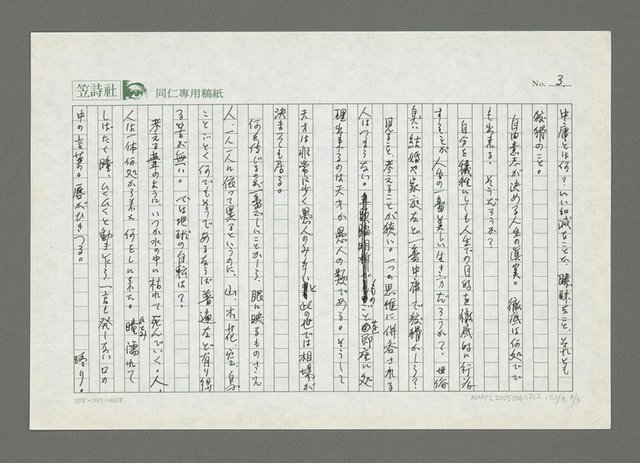 笠詩社
同仁専用稿紙
No. 3
中庸とは何？いい加減なことか、曖昧なこと、それとも
狡猾のこと。
自由意志が決める人生の真実。徹底は何処でで
も出来る。そうだろうか？
自分を犠牲にしても人生での目的を徹底的に行な
すことが人生の一番美しい生き方だろうか？世俗
臭い結婚や家庭などと一番中庸で狡猾かしら？
見ること、考えることが狭い。一つの思惟に併呑される
人はつまらない。ものごとを即座に処
理出来るのは天才か愚人の類である。そうして
天才は非常に少く愚人のみ多いと此の世では相場が
決まっても居る。
何を信じるのが一番正しいことかしら、眼に映るものさえ
人、一人一人に依って異るというのに、山、木、花、空、鳥
ことごとく何でもそうであるならば普遍など有り得
る筈が無い。では地球の自転は？
考える葦のように、いつか水の中に枯れて死んでいく。人、
人は一体何処から来た、何をしに来た。瞳濡れて
ひとみ
しばたく睫、ひくひくと動きたくも一言も発しない口の
中の言葉。唇がひきつる。
20字×20行=400字
NMTL20050060212